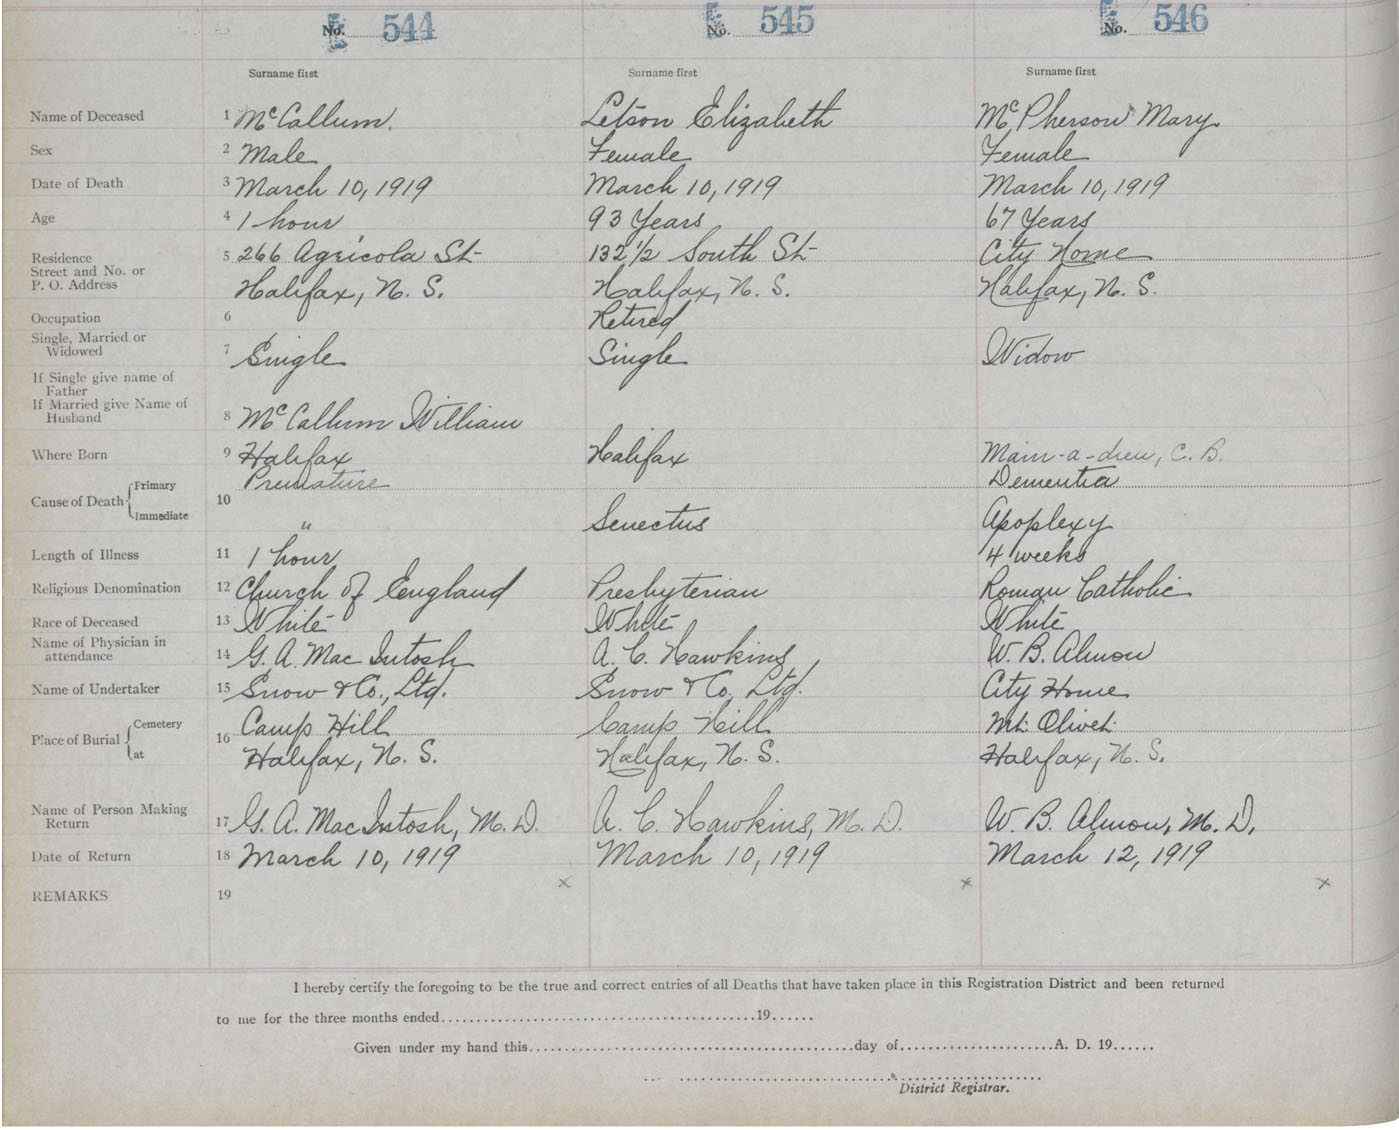 No. 544 No. 545 No. 546
Surname first Surname first Surname first
Name of Deceased 1 McCallum. Letson Elizabeth McPherson Mary
Sex 2 Male Female Female
Date of Death 3 March 10, 1919 March 10, 1919 March 10, 1919
Age 4 1 hour 93 Years 67 Years
Residence 5 266 Agricola St 132 1/2 South St City Home
Street and No. or
P. O. Address Halifax, N. S. Halifax, N. S. Halifax, N. S.
Occupation 6 Retired
Single, Married or
Widowed 7 Single Single Widow
If Single give name of
Father
If Married give Name of
Husband 8 McCallum William
Where Born 9 Halifax Halifax Main-a-dieu, C. B.
Cause of Death Primary Premature Dementia
10
Immediate " Senectus Apoplexy
Length of Illness 11 1 hour 4 weeks
Religious Denomination 12 Church of England Presbyterian Roman Catholic
Race of Deceased 13 White White White
Name of Physician in
attendance 14 G. A. Mac Intosh A. C. Hawkins W. B. Almon
Name of Undertaker 15 Snow & Co., Ltd. Snow & Co., Ltd. City Home
Place of Burial Cemetery 16 Camp Hill Camp Hill Mt. Olivet
at Halifax, N. S. Halifax, N. S. Halifax, N. S.
Name of Person Making
Return 17 G. A. MacIntosh, M. D. A. C. Hawkins, M. D. W. B. Almon, M. D.
Date of Return 18 March 10, 1919 March 10, 1919 March 12, 1919
REMARKS 19 x x x
I hereby certify the foregoing to be the true and correct entries of all Deaths that have taken place in this Registration District and been returned
to me for the three months ended..........19......
Given under my hand this..........day of..........A. D. 19......
District Registrar.